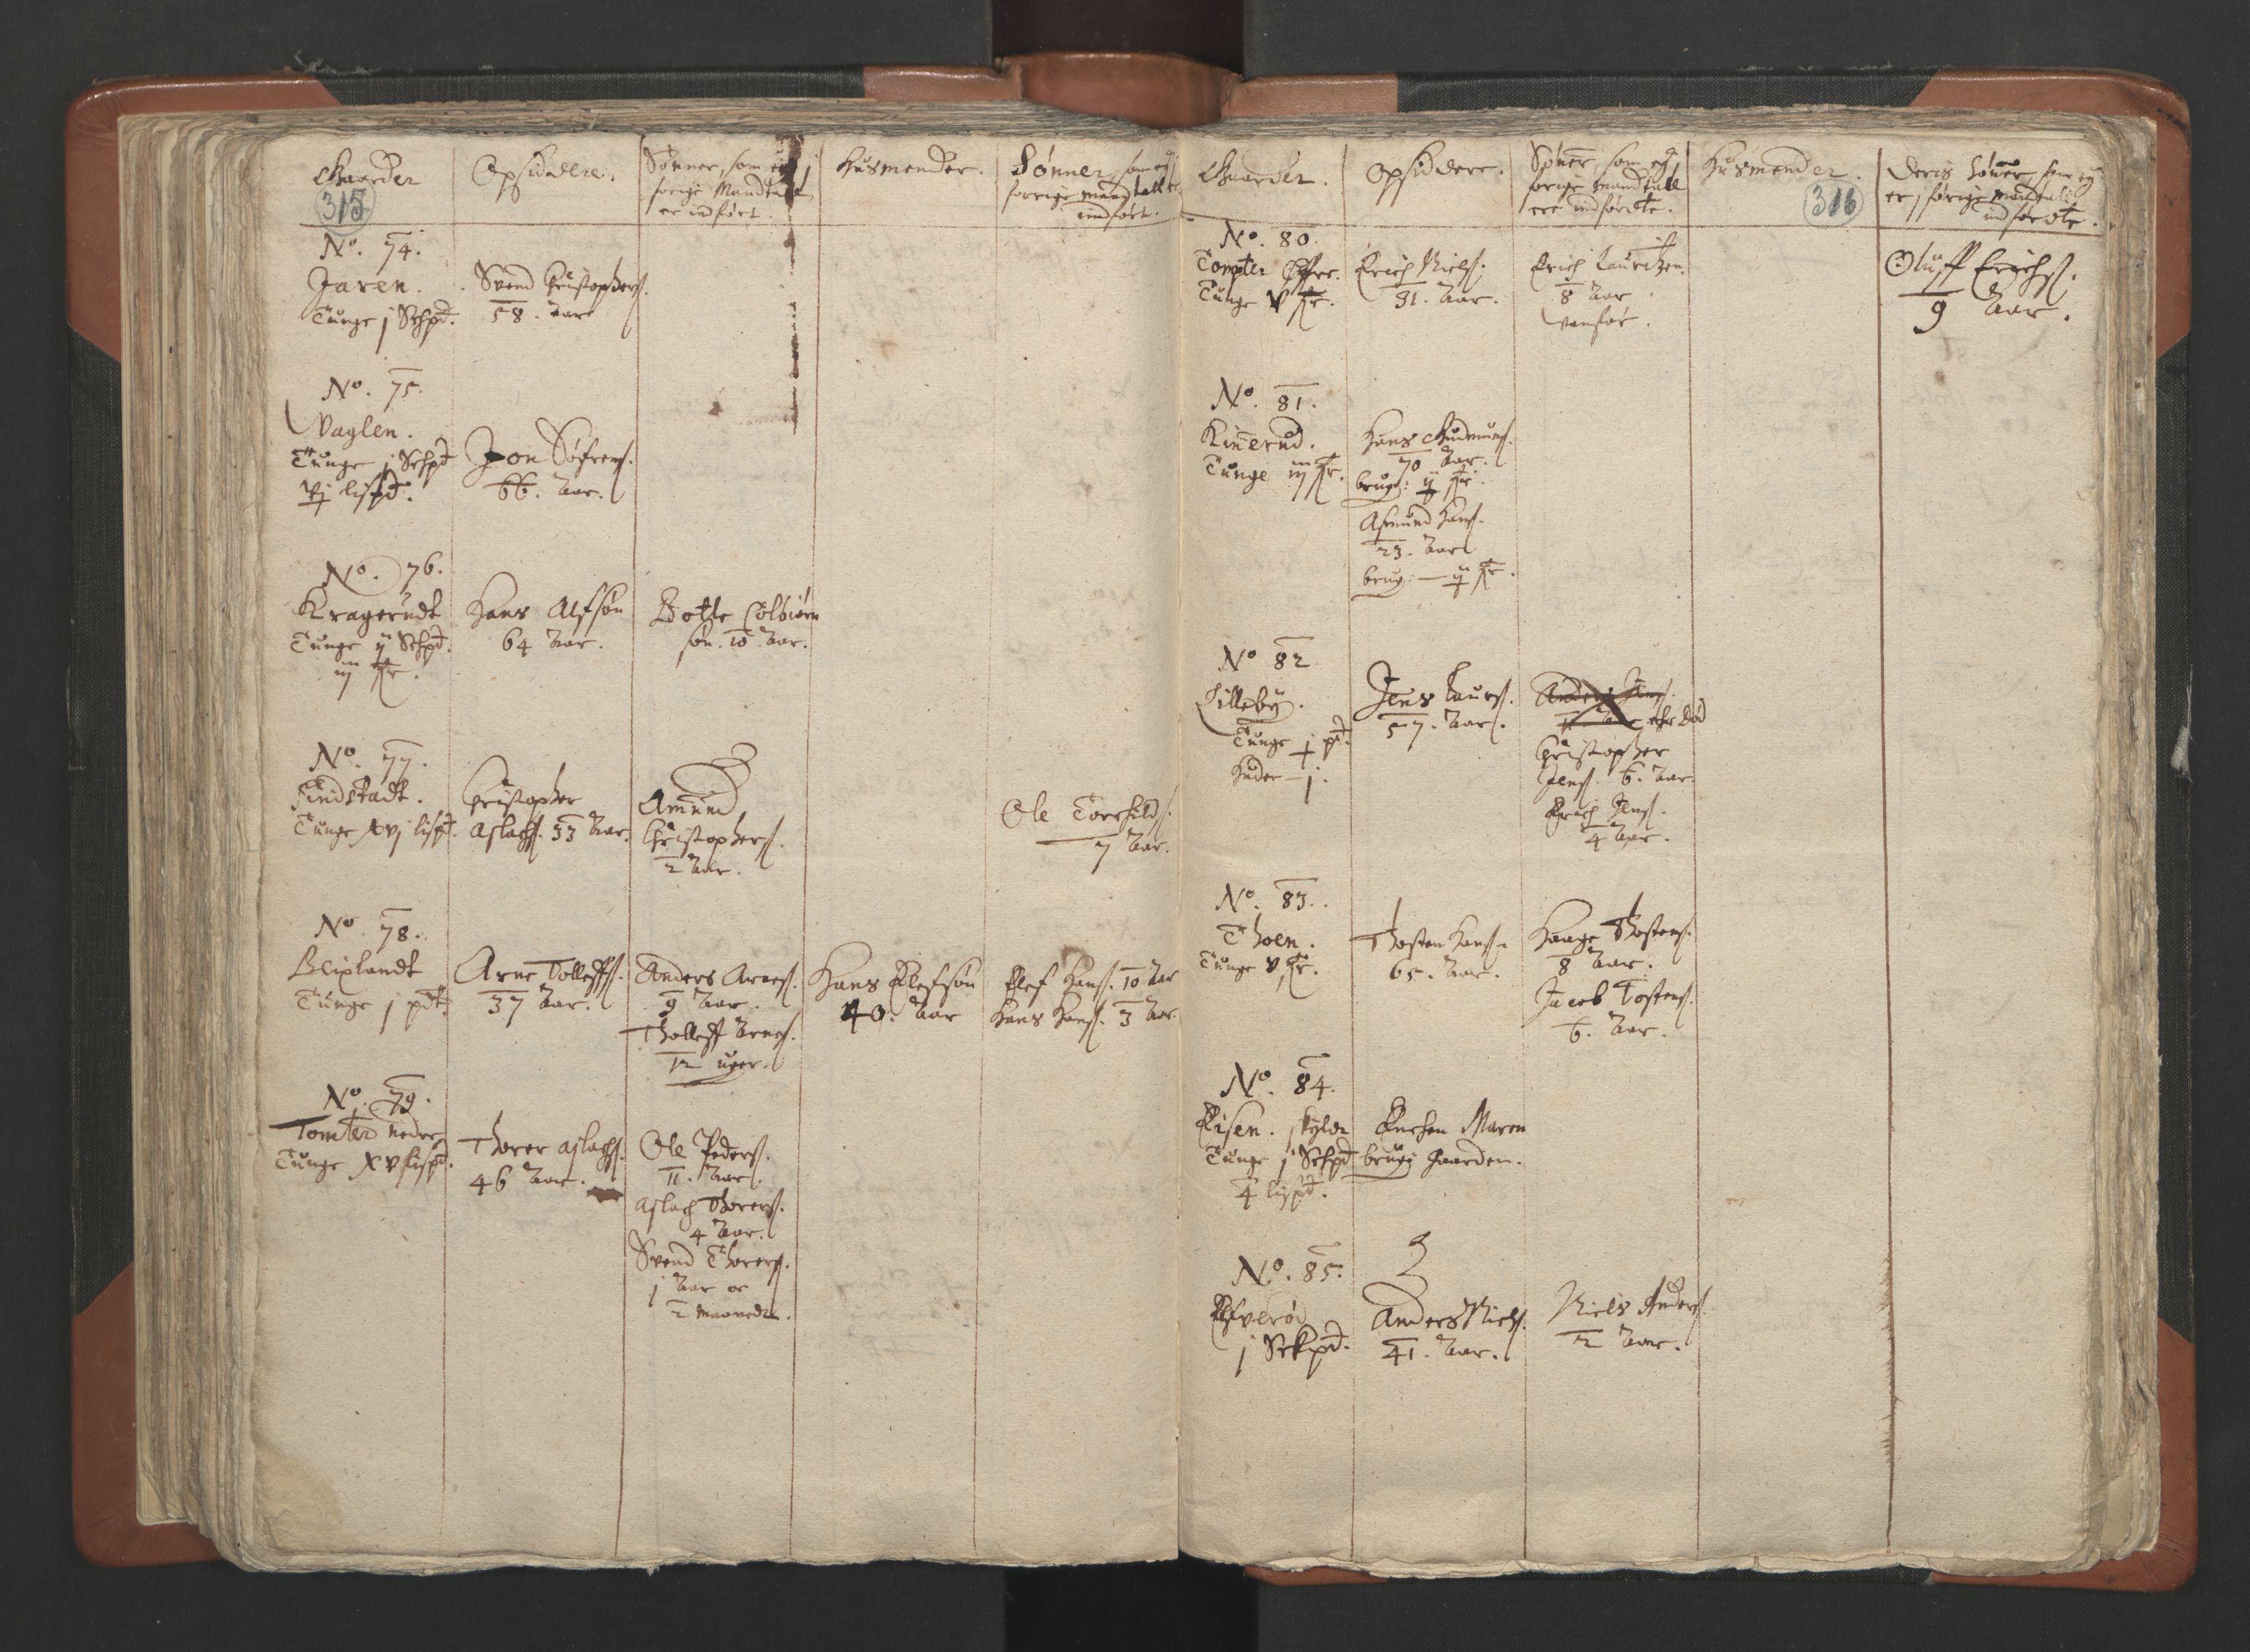 Gaarder
315
Opsiddere.
Sønner, som ej
forige Mandtall
er indført.
Husmender.
Sønner, som ej
forrige mandtall
indført.
No. 74.
Jaren.
Tunge j Schpd.
Svend Christophers.
58. Aar
No. 75.
Vaglen.
Tunge j Schpd
vj lispd.
Jon Söfrens.
66. Aar.
No. 76.
Kragerudt
Tunge ij Schpd.
iij fr.
Hans Alfsøn
64 Aar.
Botle Colbiørn
søn. 10 Aar.
No. 77.
Findstadt.
Tunge xvj lispd.
Christopher
Aslachs. 33 Aar.
Amund
Christophers.
2 Aar.
Ole Torchilds.
7 Aar.
No. 78.
Blixlandt
Tunge j pdt.
Arne Tolleffs.
37 Aar.
Anders Arnes.
9 Aar.
Tholleff Arnes.
12 uger.
Hans Elefsøn
40. Aar
Elef Hans. 10 Aar
Hans Hans. 3 Aar.
No. 79.
Tomter nedre
Tunge xv lispd.
Thorer Aslachs.
46 Aar.
Ole Peders.
11. Aar.
Aslach Thorers.
4 Aar.
Svend Thorers.
j Aar oc
2 maaneder.
Gaarder.
Opsiddere.
Sønner, som ej
forige mandtall
ere indførdte.
Husmender.
316
Deris sønner som ej
er j forige mandtall
indførdte.
No. 80.
Tompter
Tunge v fr.
Erich Niels.
31. Aar.
Erich Lauritzen.
8 Aar
vanfør.
Oluff Erichs.
9 Aar.
No. 81.
Kinnerud.
Tunge iij fr.
Hans Gudmunds.
70 Aar.
brug: ij fr.
Asmund Hans.
23. Aar
brug: — ij fr.
No 82
Lilleby.
Tunge j pd.
Huder — j.
Jens Laurs.
57. Aar.
Anders Jens.
ehr død
Christopher
Jens. 6. Aar.
Erich Jens.
4 Aar.
No. 83.
Thoen.
Tunge v fr.
Thosten Hans.
65. Aar.
Haage Thostens.
8 Aar.
Jacob Tostens.
6. Aar.
No. 84.
Risen. skylder
Tunge j Schpd
4 lispd.
Enchen Maren
brug: Gaarden.
No. 85.
j Schpd.
Anders Niels.
41. Aar.
Niels Anders.
2 Aar.